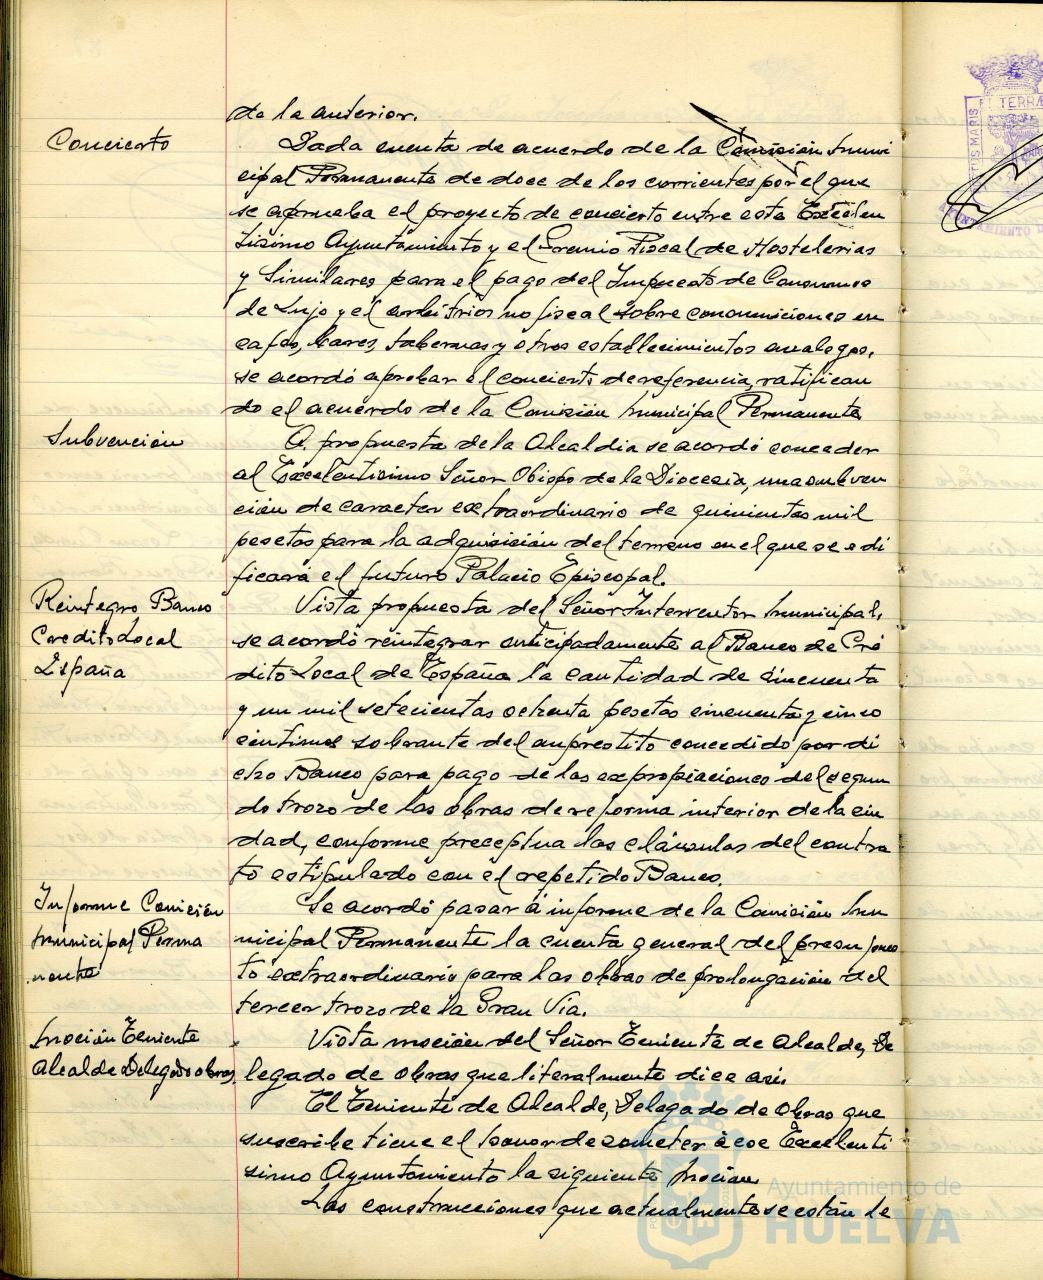 de la anterior.
Concierto
Dada cuenta de acuerdo de la Comisión Muni
cipal Permanente de doce de los corrientes por el que
se aprueba el proyecto de concierto entre este Excelen
tísimo Ayuntamiento y el Gremio Fiscal de Hostelerias
y Similares para el pago del Impuesto de Consumos
de Lujo y el arbitrios no fiscal sobre consumiciones en
cafes, bares, tabernas y otros establecimientos analogos,
se acordó aprobar el concierto de referencia, ratifican
do el acuerdo de la Comisión Municipal Permanente
Subvención
A propuesta de la Alcaldia se acordó conceder
al Excelentisimo Señor Obispo de la Diocesis, una subven
ción de caracter extraordinario de quinientas mil
pesetas para la adquisición del terreno en el que se edi
ficará el futuro Palacio Episcopal.
Reintegro Banco
Credito Local
España
Vista propuesta del Señor Interventor Municipal,
se acordó reintegrar anticipadamente al Banco de Cré
dito Local de España la cantidad de cincuenta
y un mil setecientas ochenta pesetas cincuenta y cinco
centimos sobrante del emprestito concedido por di
cho Banco para pago de las expropiaciones del segun
do trozo de las obras de reforma interior de la ciu
dad, conforme preceptua las cláusulas del contra
to estipulado con el repetido Banco.
Informe Comisión
Municipal Perma
nente
Se acordó pasar á informe de la Comisión Mu
nicipal Permanente la cuenta general del presupues
to extraordinario para las obras de prolongación del
tercer trozo de la Gran Vía.
Moción Teniente
Alcalde Delegado obras
Vista moción del Señor Teniente de Alcalde, De
legado de obras que literalmente dice asi:
El Teniente de Alcalde, Delegado de Obras que
suscribe tiene el honor de someter á ese Excelenti
simo Ayuntamiento la siguiente Moción
Las construcciones que actualmente se están le
Ayuntamiento de
HUELVA